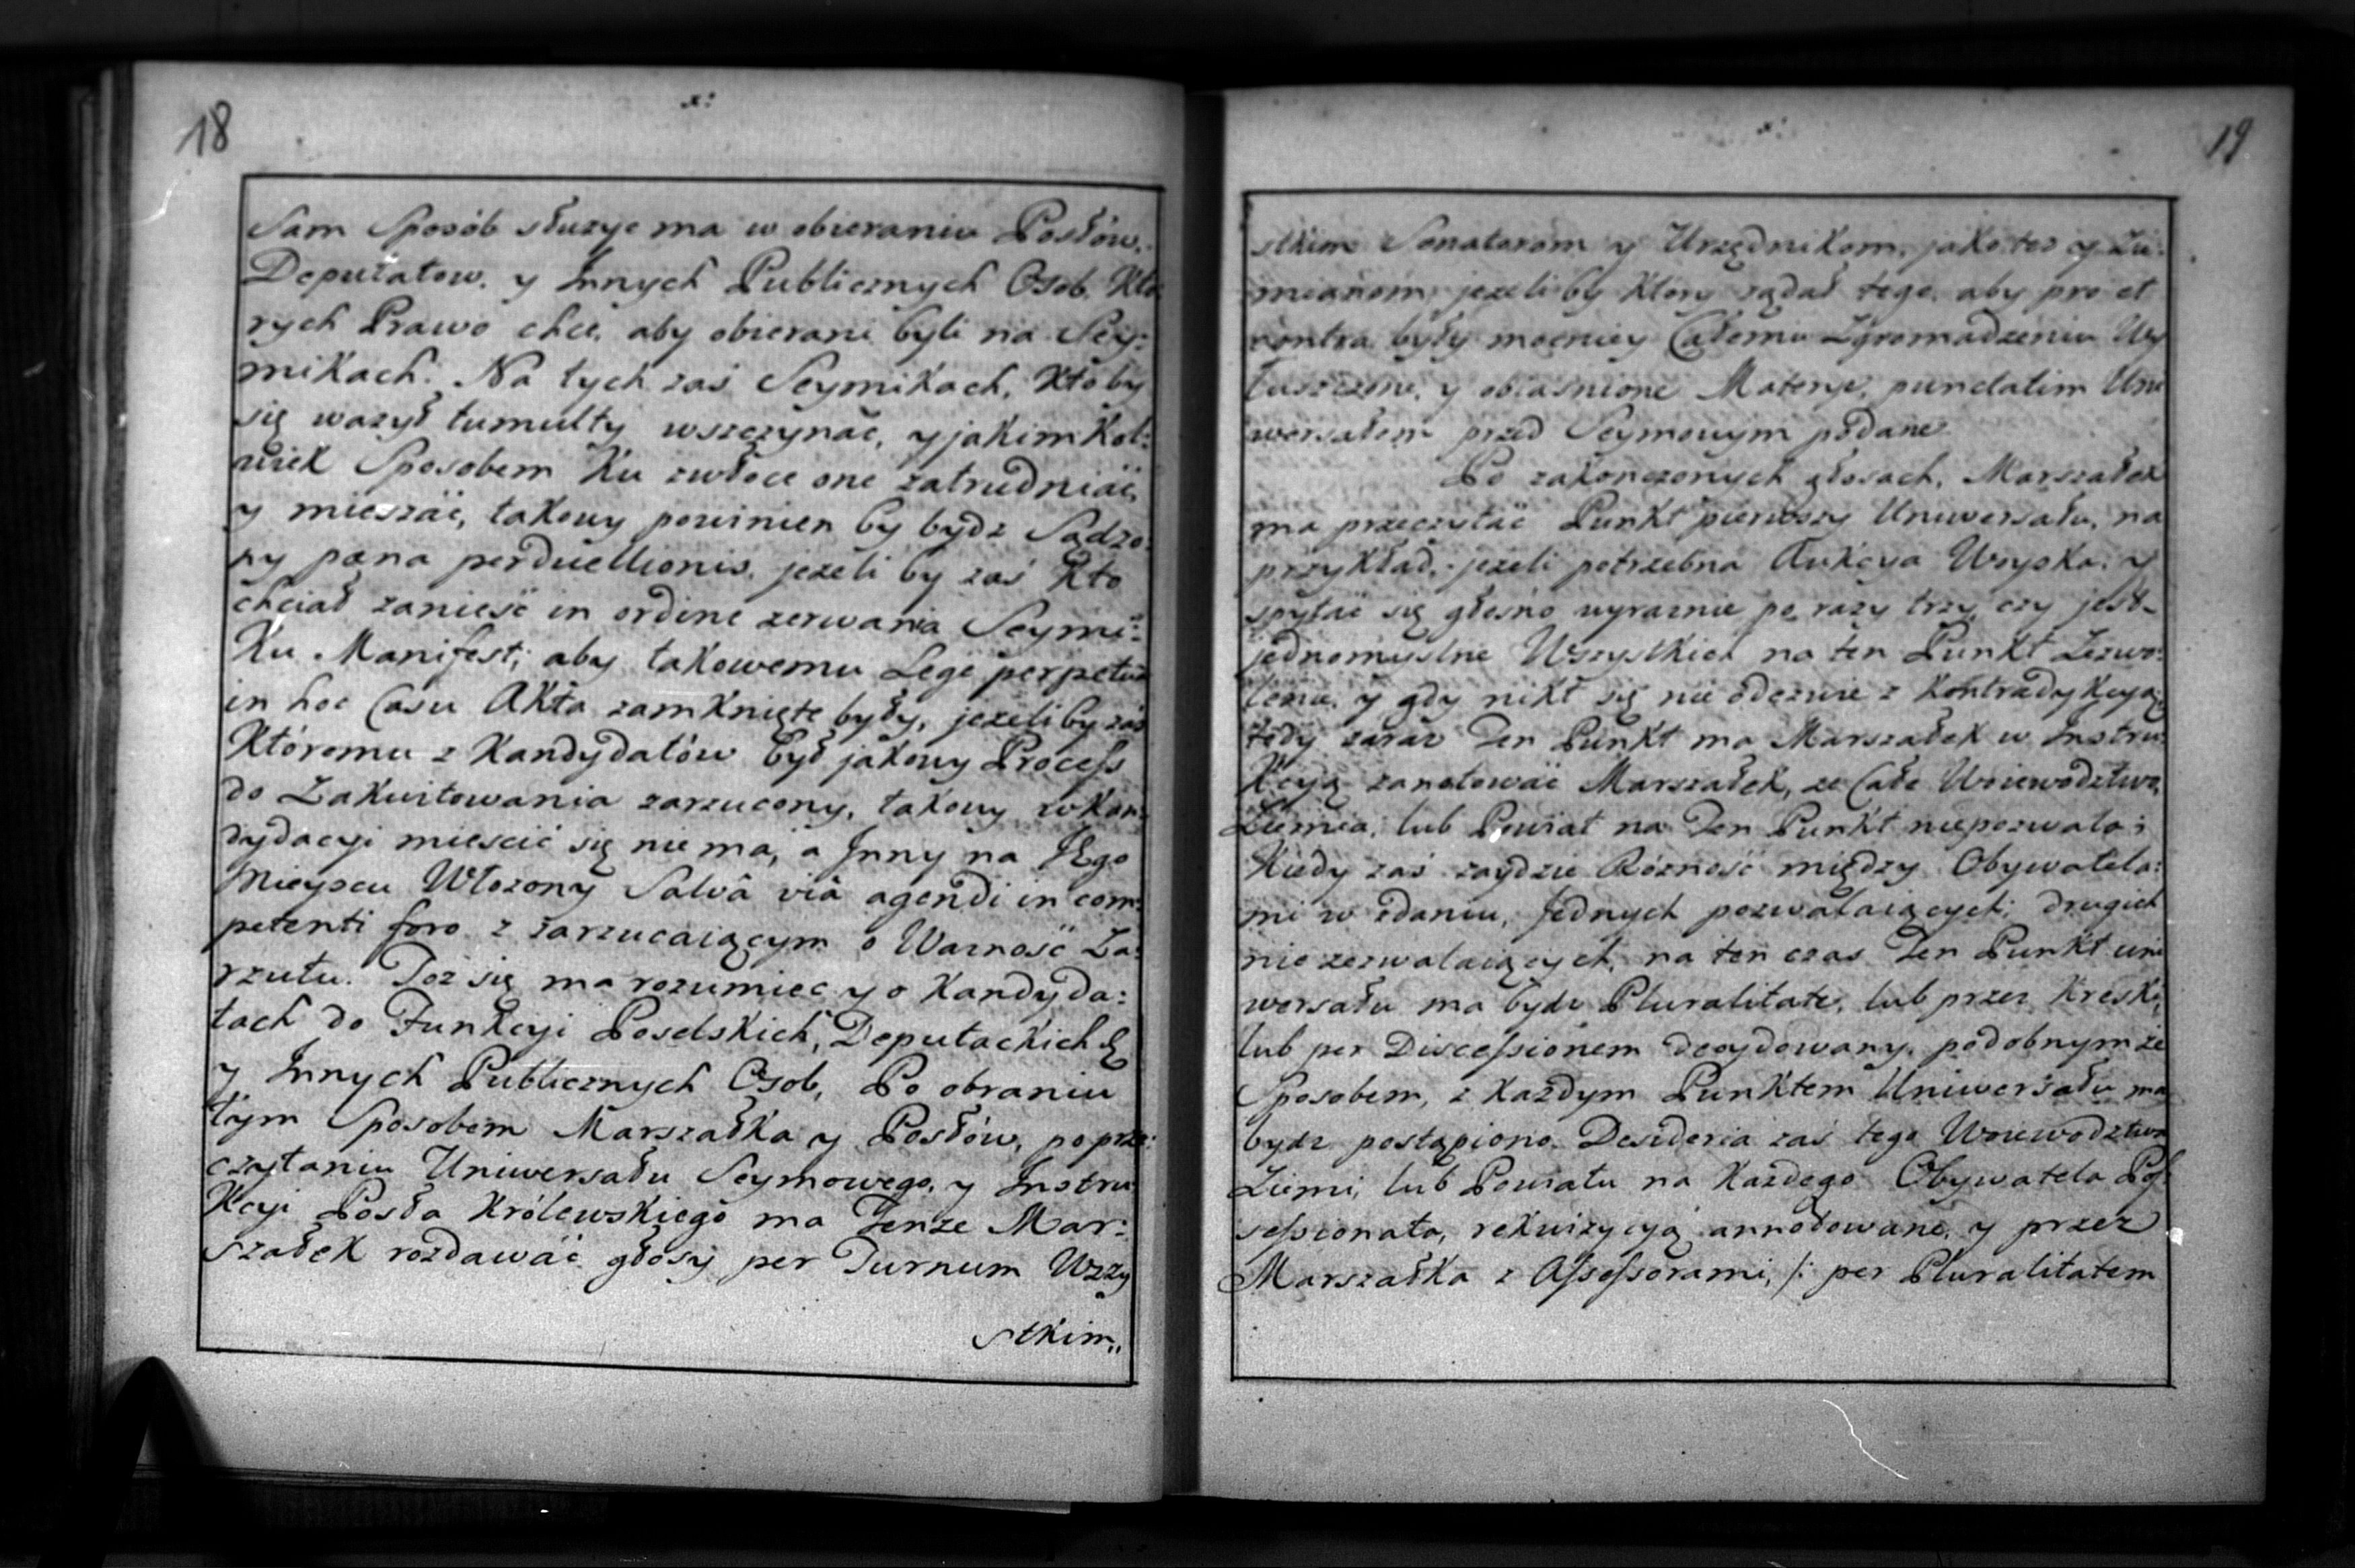 18
Sam Sposób służyc ma w obieraniu Posłów,
Deputatow, y Innych Publicznych Osob, Któ
rych Prawo chce, aby obierani byli na Sey:
mikach. Na tych zaś Seymikach, Ktoby
się ważył tumulty wszczynać, y jakimkol:
wiek Sposobem Ku zwłoce one zatrudniać,
y mieszać, takowy powinien by bydz Sądzo:
ny pæna perduellionis, jeżeli by zaś Kto
chciał zanieść in ordine zerwania Seymi:
Ku Manifest; aby takowemu Lege perpetua
in hoc Casu Akta zamknięte były, jeżeli by zaś
Któremu z Kandydatów był jakowy Process
do Zakwitowania zarzucony, takowy w kan:
dydacyi mieścić się nie ma, a Inny na Jego
Mieyscu Włożony Salvâ viâ agendi in com:
petenti foro z zarzucaiącym o Ważność Za:
rzutu. Toż się ma rozumiec y o Kandyda:
tach do Funkcyi Poselskich, Deputackich
y Innych Publicznych Osob, Po obraniu
tym Sposobem Marszałka y Posłów, po prze:
czytaniu Uniwersału Seymowego, y Instru
Kcyi Posła Królewskiego ma Tenże Mar:
szałek rozdawać głosy per Turnum Wszy
stkim,,
19
stkim Senatorom y Urzędnikom, jako też y Zie:
mianom, jeżeli by Ktory żądał tego, aby pro et
contra były mocniey Całemu Zgromadzeniu Wy
łuszczone, y obiaśnione Materye, punctatim Uni
wersałem przed Seymowym podane
Po zakończonych głosach, Marszałek
ma przeczytać Punkt pierwszy Uniwersału, na
przykład, jeżeli potrzebna Aukcya Woyska, y
spytać się głośno wyraznie po razy trzy, czy jest
jednomyślne Wszystkich na ten Punkt Zezwo:
lenie, y gdy nikt się nie odezwie z Kontradykcyą,
tedy zaraz Ten Punkt ma Marszałek w Instru:
Kcyą zanotować Marszałek, że Całe Woiewodztwo,
Ziemia, lub Powiat na Ten Punkt niepozwala;
Kiedy zaś zaydzie Rózność między Obywatela:
mi w zdaniu, Jednych pozwalaiących, drugich
nie zezwalaiących, na ten czas Ten Punkt uni
wersału ma bydz Pluralitate, lub przez Kreski,
lub per Discessionem decydowany, podobnym że
Sposobem, z Każdym Punktem Uniwersału ma
bydz postąpiono. Desideria zaś tego Woiewodztwa
Ziemi, lub Powiatu na Każdego Obywatela Pos
sessionata, rekwizycyą annotowane, y przez
Marszałka z Assessorami, /: per Pluralitatem